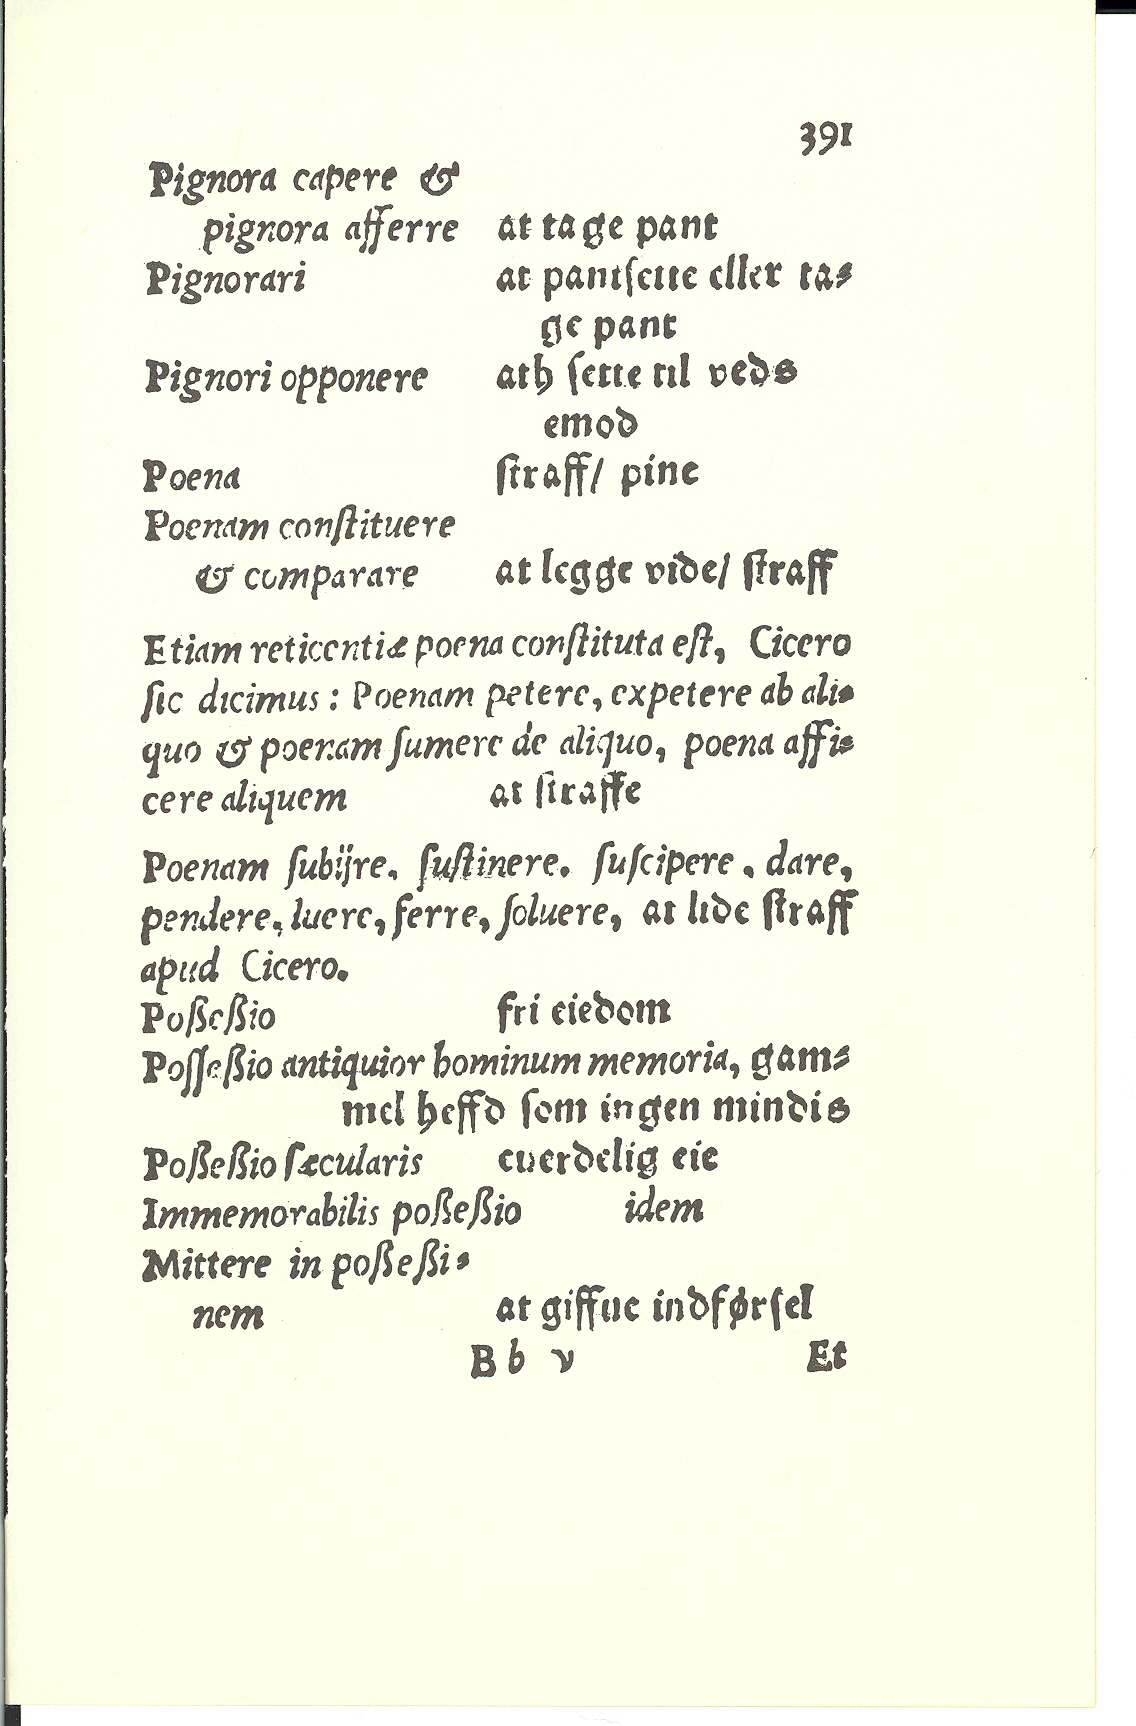 391
Pignora capere &
pignora afferre at tage pant
Pignorari at pantſette eller ta⸗
ge pant
Pignori opponere ath ſette til veds
emod
Poena ſtraff/ pine
Poenam conſtituere
& comparare at legge vide/ ſtraff
Etiam reticentiæ poena conſtituta eſt, Cicero
ſic dicimus: Poenam petere, expetere ab ali⸗
quo & poenam ſumere de aliquo, poena affi⸗
cere aliquem at ſtraffe
Poenam ſubijre. ſuſtinere. ſuſcipere. dare,
pendere, luere, ferre, ſoluere, at lide ſtraff
apud Cicero.
Poßeßio fri eiedom
Poſſeßio antiquior hominum memoria, gam⸗
mel heffd ſom ingen mindis
Poßeßio ſæcularis euerdelig eie
Immemorabilis poßeßio idem
Mittere in poßeßi⸗
nem at giffue indførſel
B b v Et